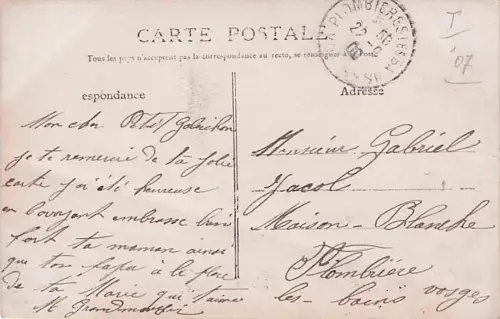 CARTE POSTALE
Tous les pays n'acceptent pas la correspondance au recto, se renseigner à la Poste
PLOMBIERES LES B
T
'07
espondance
Adresse
Mon cher Petit
je te remercie de ta jolie
carte j'ai été heureuse
en la voyant embrasse bien
fort ta maman ainsi
que ton papa à le place
de ta Marie qui t'aime
M.
Monsieur Gabriel
Jacol
Maison-Blanche
Plombière
les-bains vosges